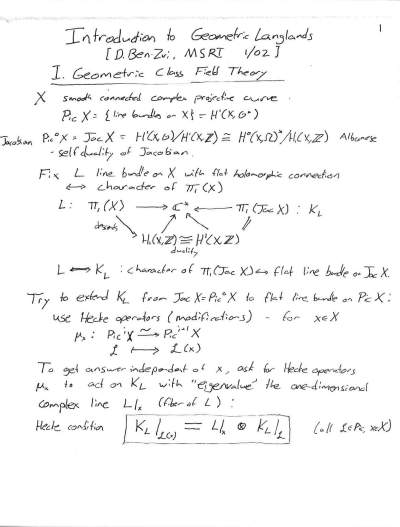 1
Introduction to Geometric Langlands
[D. Ben-Zvi, MSRI 1/02]
I. Geometric Class Field Theory
X smooth connected complex projective curve.
Pic X = {line bundles on X} = H¹(X, O*)
Jacobian Pic⁰X = Jac X = H¹(X,O)/H¹(X,ℤ) ≅ H⁰(X,Ω)*/H₁(X,ℤ) Albanese
- self duality of Jacobian.
Fix L line bundle on X with flat holomorphic connection
↔ character of π₁(X)
L: π₁(X) → ℂ* ← π₁(Jac X) : K_L
descends H₁(X,ℤ) ≅ H¹(X,ℤ)
duality
L ↔ K_L : character of π₁(Jac X) ↔ flat line bundle on Jac X.
Try to extend K_L from Jac X = Pic⁰X to flat line bundle on Pic X:
use Hecke operators (modifications) - for x∈X
μₓ : Picⁱ X ⥲ Picⁱ⁺¹ X
ℒ ↦ ℒ(x)
To get answer independent of x, ask for Hecke operators
μₓ to act on K_L with "eigenvalue" the one-dimensional
complex line L|ₓ (fiber of L) :
Hecke condition K_L|_ℒ(x) = L|ₓ ⊗ K_L|_ℒ (all ℒ∈Pic, x∈X)